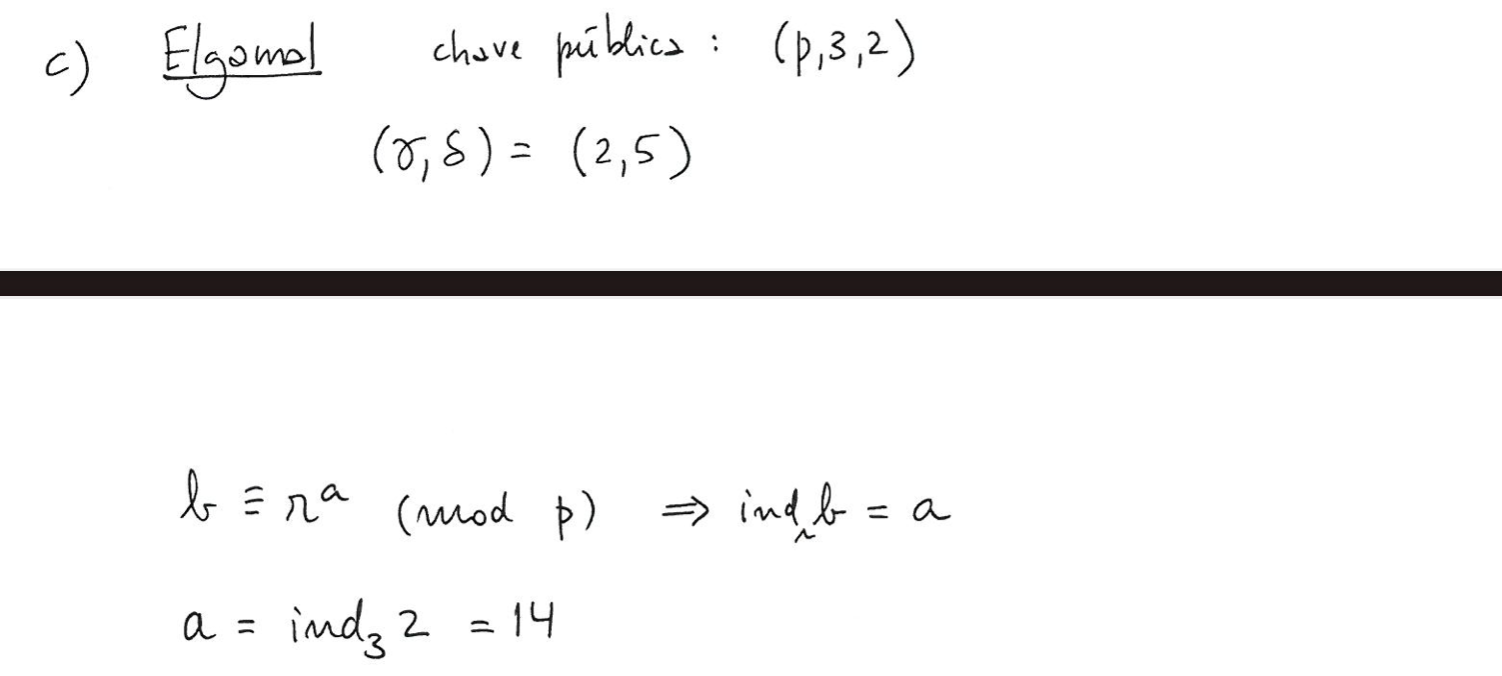 c) Elgamal chave pública : (p,3,2)
(γ,δ) = (2,5)
b ≡ r^a (mod p) ⇒ ind_r b = a
a = ind_3 2 = 14